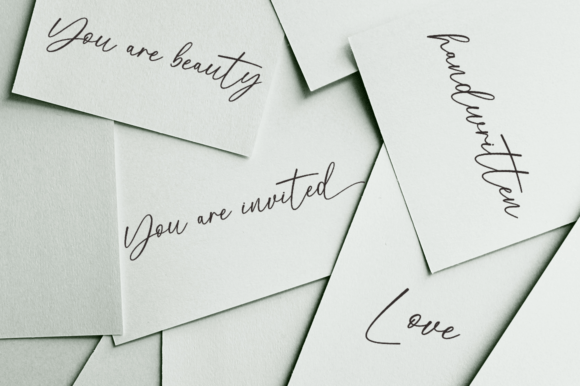 You are beauty
handwritten
You are invited
Love